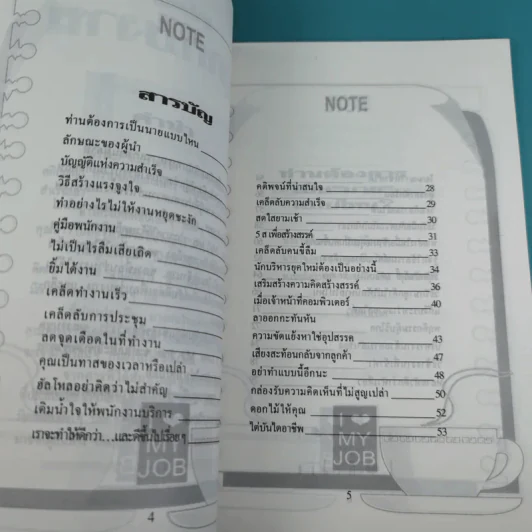 NOTE
สารบัญ
ท่านต้องการเป็นนายแบบไหน
ลักษณะของผู้นำ
บัญญัติแห่งความสำเร็จ
วิธีสร้างแรงจูงใจ
ทำอย่างไรไม่ให้งานหยุดชะงัก
คู่มือพนักงาน
ไม่เป็นไรลืมเสียเถิด
ยิ้มได้งาน
เคล็ดทำงานเร็ว
เคล็ดลับการประชุม
ลดจุดเดือดในที่ทำงาน
คุณเป็นทาสของเวลาหรือเปล่า
ฮัลโหลอย่าคิดว่าไม่สำคัญ
เติมน้ำใจให้พนักงานบริการ
เราจะทำให้ดีกว่า...และดีขึ้นไปเรื่อยๆ
MY
JOB
4
NOTE
คติพจน์ที่น่าสนใจ 28
เคล็ดลับความสำเร็จ 29
สดใสยามเช้า 30
5 ส เพื่อสร้างสรรค์ 31
เคล็ดลับคนขี้ลืม 33
นักบริหารยุคใหม่ต้องเป็นอย่างนี้ 34
เสริมสร้างความคิดสร้างสรรค์ 36
เมื่อเจ้าหน้าที่คอมพิวเตอร์ 40
ลาออกกะทันหัน
ความขัดแย้งหาใช่อุปสรรค 43
เสียงสะท้อนกลับจากลูกค้า 47
อย่าทำแบบนี้อีกนะ 48
กล่องรับความคิดเห็นที่ไม่สูญเปล่า 50
ดอกไม้ให้คุณ 52
ไต่บันไดอาชีพ 53
I
MY
JOB
5